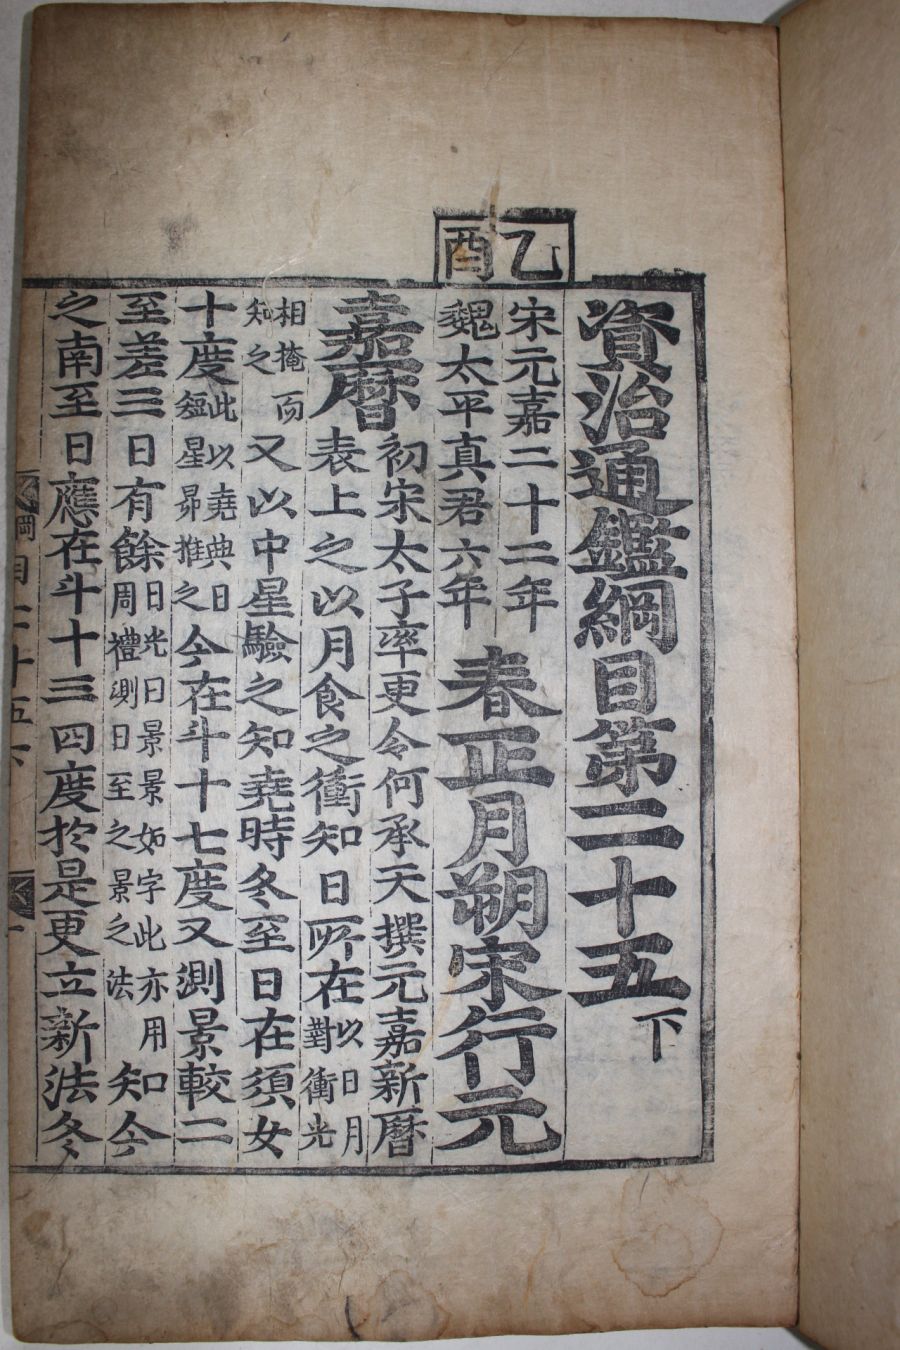 乙酉
資治通鑑綱目第二十五下
宋元嘉二十二年
魏太平真君六年
春正月朔宋行元
嘉曆
初宋太子率更令何承天撰元嘉新曆
表上之以月食之衝知日所在
以日月
對衝光
相掩而
知之
又以中星驗之知堯時冬至日在須女
十度
此以堯典日
短星昴推之
今在斗十七度又測景較二
至差三日有餘
日光曰景景如字此亦用
周禮測日至之景之法
知今
之南至日應在斗十三四度於是更立新法冬